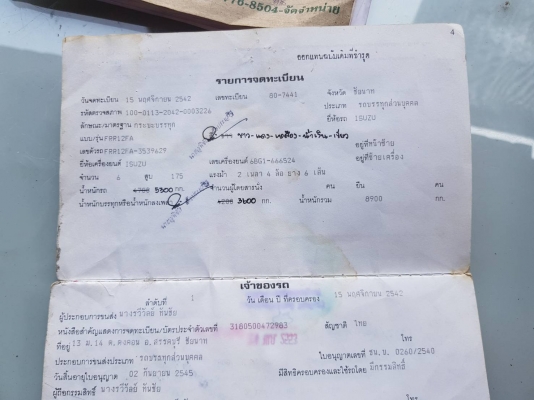 76-8504-จัดจำหน่าย
4
ออกแทนฉบับเดิมที่ชำรุด
รายการจดทะเบียน
วันจดทะเบียน 15 พฤศจิกายน 2542 เลขทะเบียน 80-7441 จังหวัด ชัยนาท
รหัสตรวจสภาพ 100-0113-2542-0003224 ประเภท รถบรรทุกส่วนบุคคล
ลักษณะ/มาตรฐาน กระบะบรรทุก ยี่ห้อรถ ISUZU
แบบ/รุ่น FRR12FA ขาว-แดง-เหลือง-น้ำเงิน-เขียว
เลขตัวรถ FRR12FA-3539629 อยู่ที่หน้าซ้าย
ยี่ห้อเครื่องยนต์ ISUZU เลขเครื่องยนต์ 6BG1-646524 อยู่ที่ซ้ายเครื่อง
จำนวน 6 สูบ 175 แรงม้า 2 เพลา 6 ล้อ ยาง 6 เส้น
น้ำหนักรถ 4700 5300 กก. จำนวนผู้โดยสารนั่ง คน ยืน คน
น้ำหนักบรรทุกหรือน้ำหนักลงเพลา 4200 3600 กก. น้ำหนักรวม 8900 กก.
เจ้าของรถ
ลำดับที่ 1 วัน เดือน ปี ที่ครอบครอง 15 พฤศจิกายน 2542
ผู้ประกอบการขนส่ง นางรวีวัลย์ ทันชัย
หนังสือสำคัญแสดงการจดทะเบียน/บัตรประจำตัวเลขที่ 3180500472983 สัญชาติ ไทย
ที่อยู่ 13 ม.14 ต.ดงคอน อ.สรรคบุรี ชัยนาท โทร
ประกอบการขนส่งประเภท รถบรรทุกส่วนบุคคล ใบอนุญาตเลขที่ ชน.บ. 0260/2540
วันสิ้นอายุใบอนุญาต 02 กันยายน 2545 มีสิทธิครอบครองและใช้รถโดย มีกรรมสิทธิ์
ผู้ถือกรรมสิทธิ์ นางรวีวัลย์ ทันชัย โทร